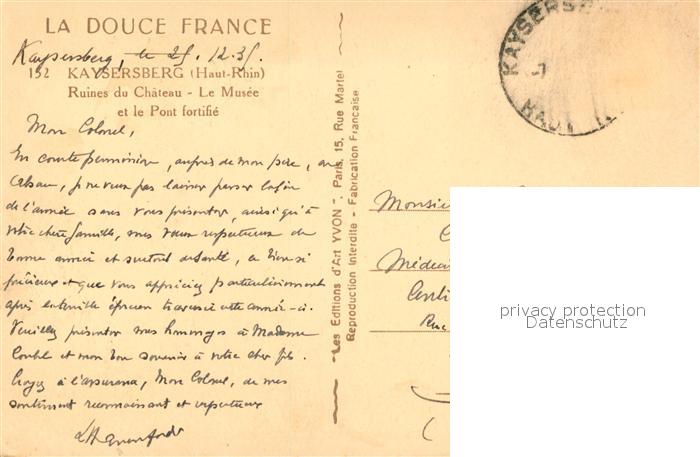 LA DOUCE FRANCE
Kaysersberg, le 25.12.35.
152 KAYSERSBERG (Haut-Rhin)
Ruines du Château - Le Musée
et le Pont fortifié
Mon Colonel,
En courte permission, auprès de mon père, en
Alsace, je ne veux pas laisser passer la fin
de l'année sans vous présenter, ainsi qu'à
votre chère famille, mes vœux respectueux de
bonne année et surtout de santé, ce bien si
précieux et que vous appréciez particulièrement
après la terrible épreuve traversée cette année-ci.
Veuillez présenter mes hommages à Madame
et mon bon souvenir à votre cher fils.
Croyez à l'assurance, Mon Colonel, de mes
sentiments reconnaissants et respectueux
"Les Editions d'Art YVON", Paris, 15, Rue Martel
Reproduction Interdite - Fabrication Française
KAYSERSB
HAUT
Monsie
Médeci
Rue
privacy protection
Datenschutz